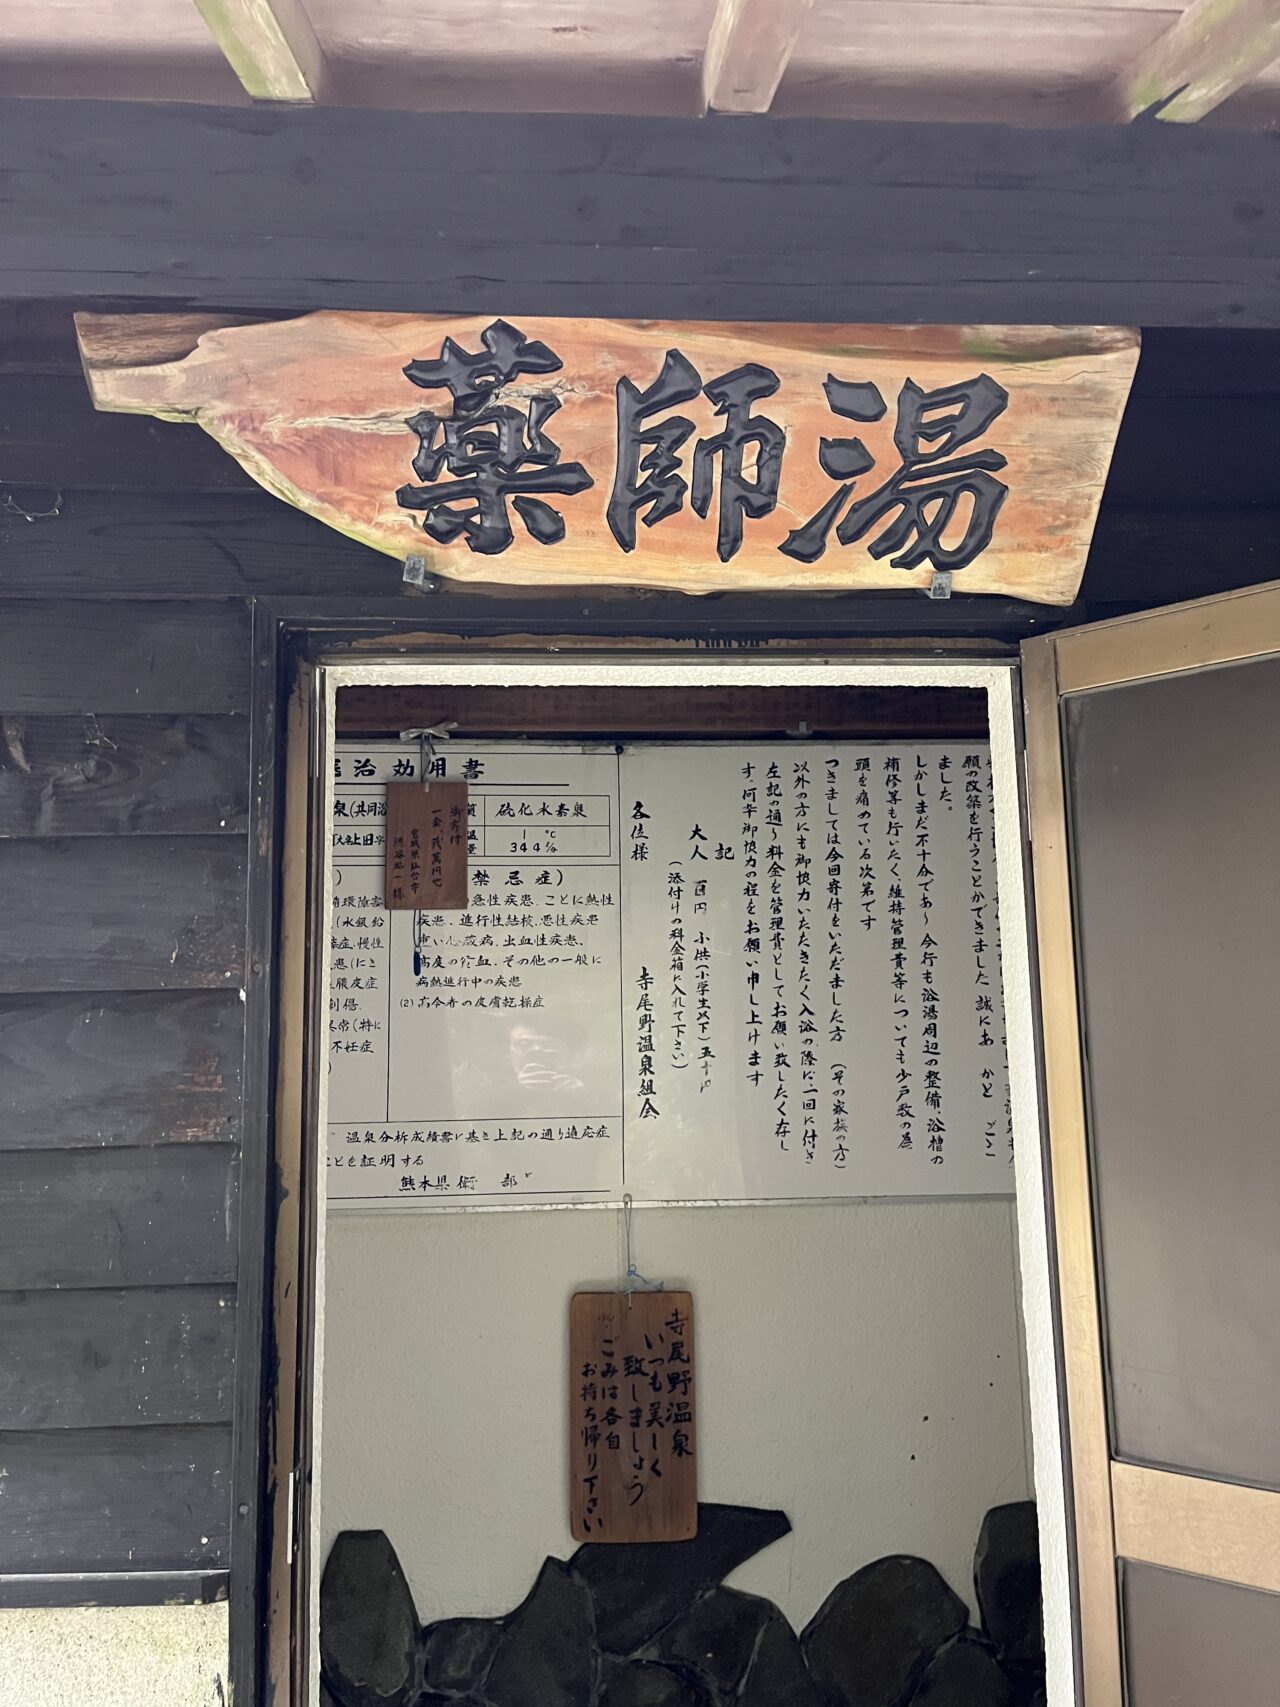 薬師湯
願の改築を行うことができました 誠にあ かと ごと
ました。
しかしまだ不十分であ 今行も浴湯周辺の整備、浴槽の
補修等も行いたく、維持管理費等についても少戸数の為
頭を痛めている次第です
つきましては今回寄付をいただました方 (その家族の方)
以外の方にも御協力いただきたく入浴の際に一回に付き
左記の通り料金を管理費としてお願い致したく存し
す。何卒御協力の程をお願い申し上けます
記
大人 百円 小供(小学生以下)五十円
(添付けの料金箱に入れて下さい)
各位様
寺尾野温泉組合
治効用書
泉(共同浴
硫化水素泉
1 ℃
344
禁忌症)
急性疾患、ことに熱性
疾患、進行性結核、悪性疾患
重い心臓病、出血性疾患、
高度の貧血、その他の一般に
病熱進行中の疾患
(2) 高令者の皮膚乾操症
循環障害
(水銀 鉛
症、慢性
患(にき
皮症
創傷、
常(特に
不妊症
温泉分析成績書に基き上記の通り適応症
ことを証明する
熊本県衛 部
御寄付
一金、弐萬円也
宮城県仙台市
様
寺尾野温泉
いつも美しく
致しましょう
ごみは各自
お持ち帰り下さい